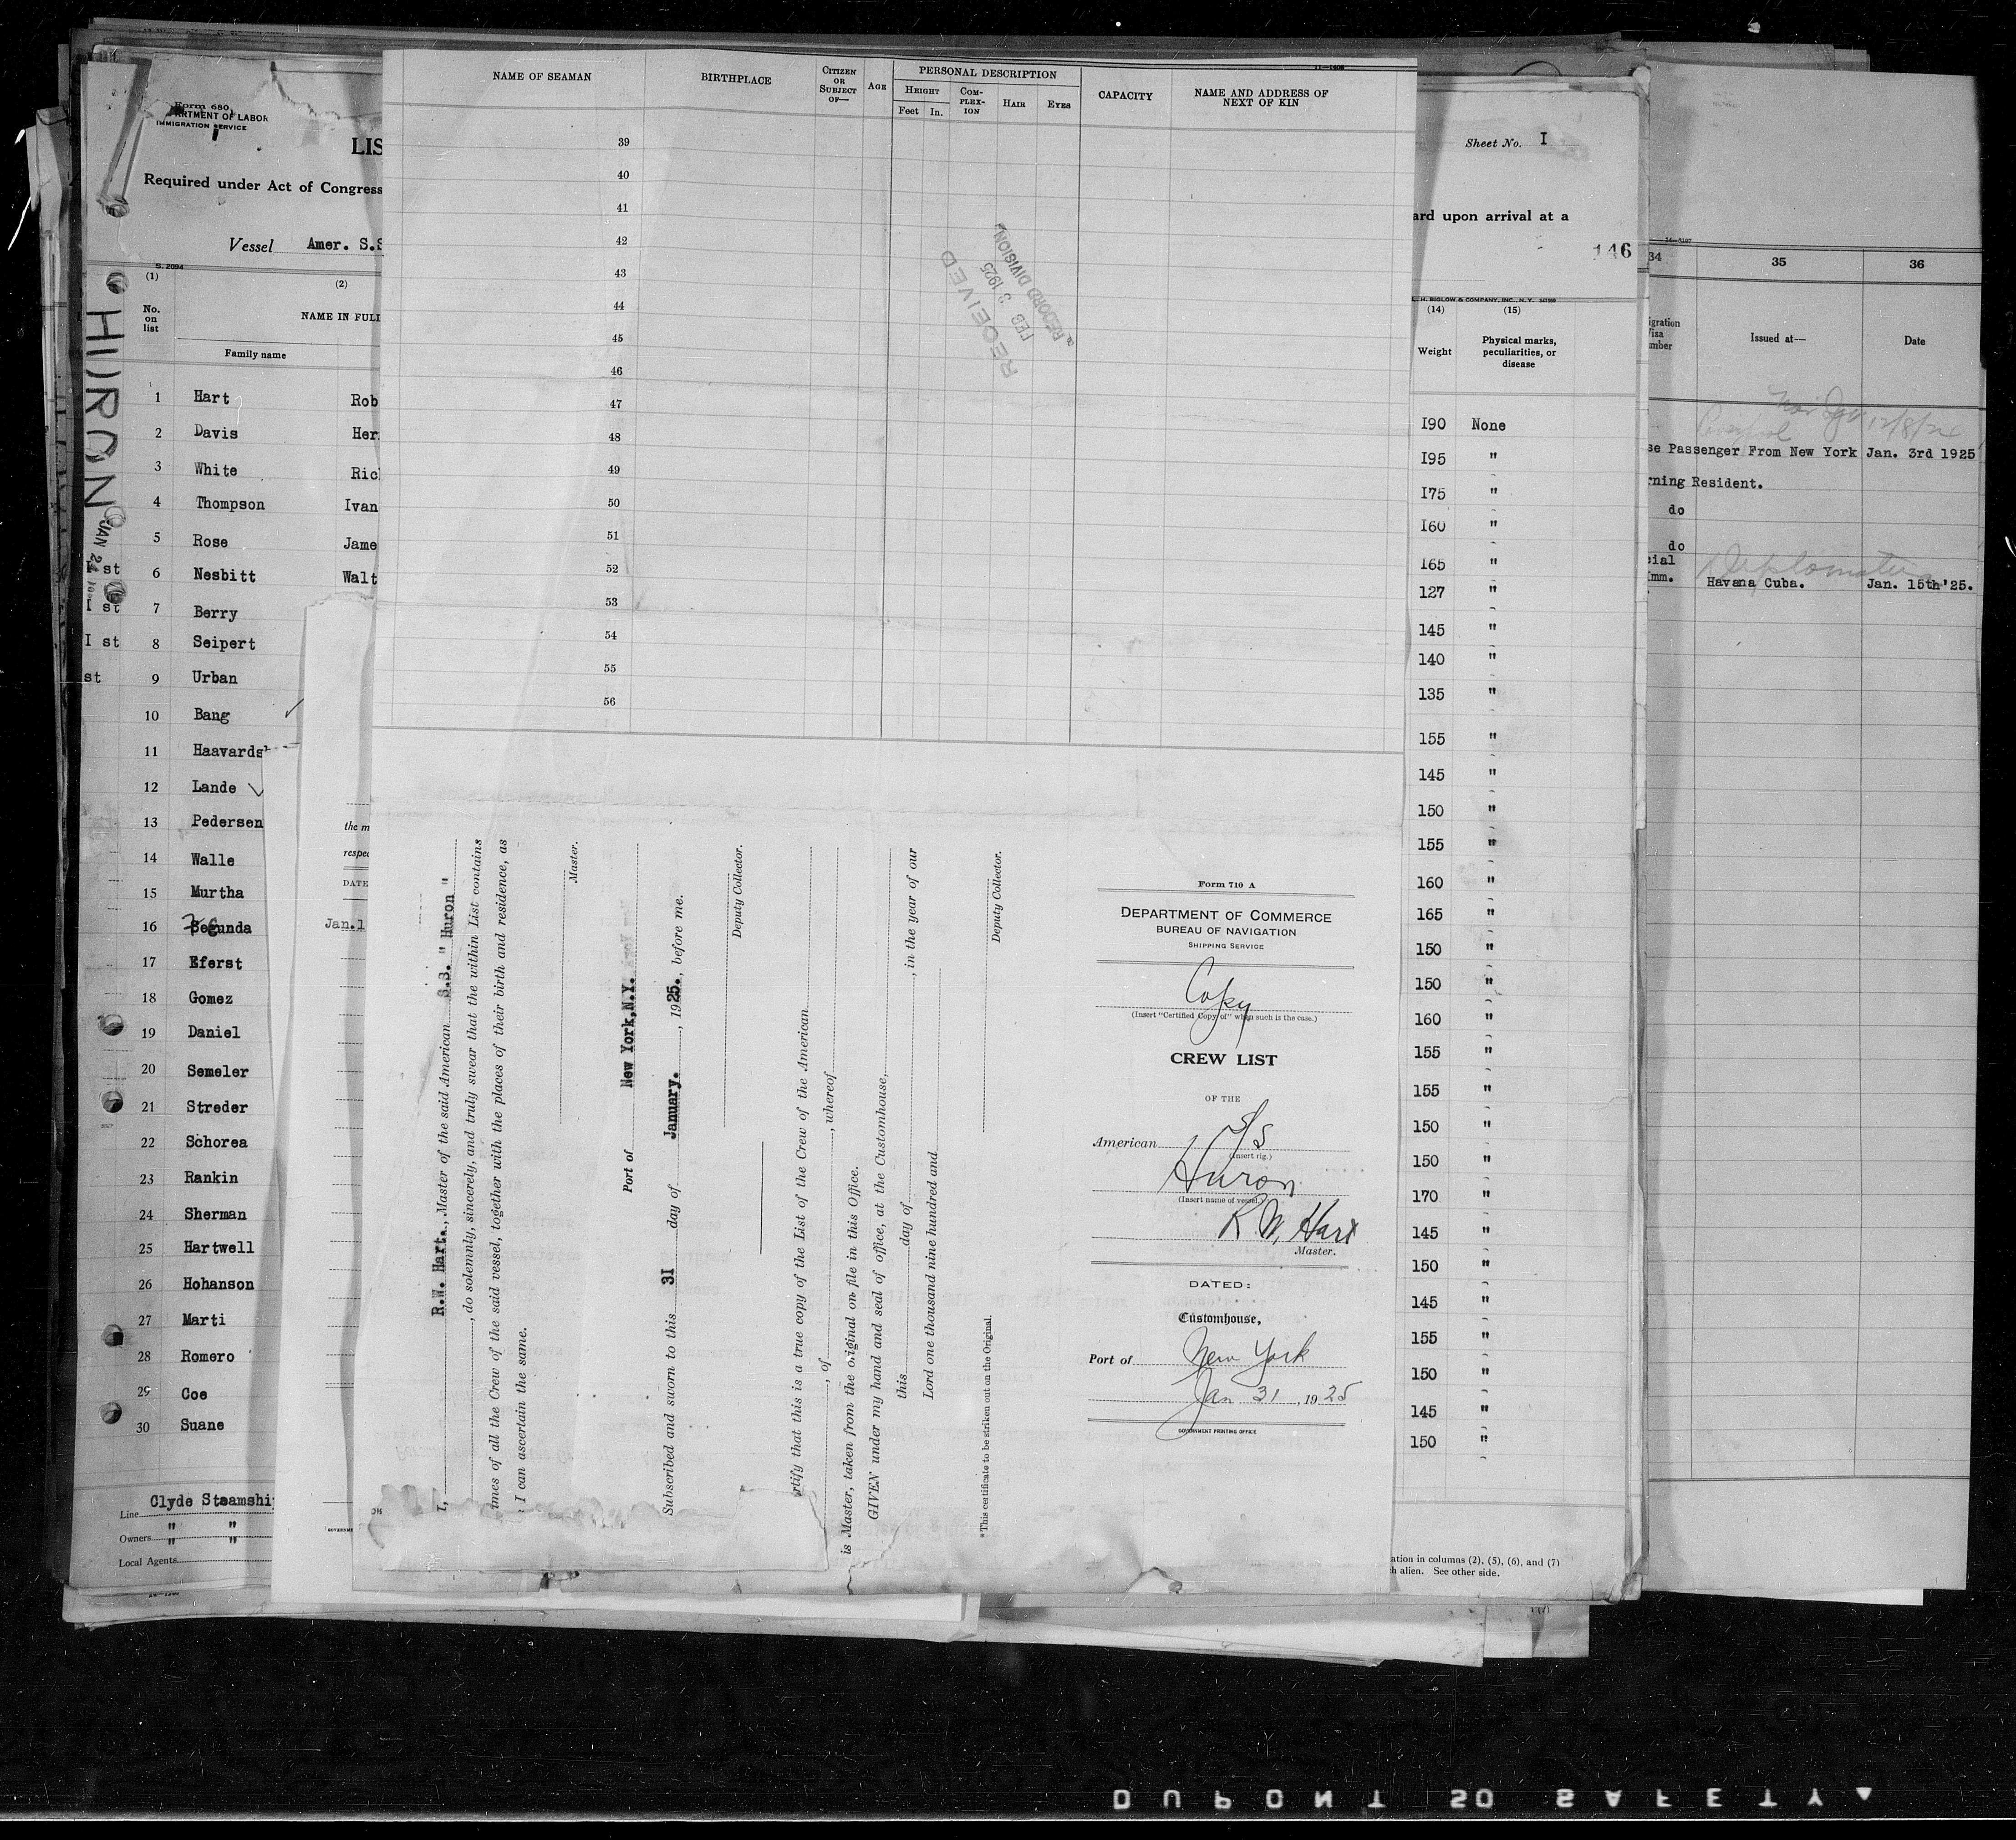 Form 680
DEPARTMENT OF LABOR
IMMIGRATION SERVICE
LIS
Required under Act of Congress
Vessel Amer. S.S
S. 2094
(1) (2)
No. on list
NAME IN FULL
Family name
HURON
JAN 2
1 Hart Rob
2 Davis Her
3 White Ric
4 Thompson Ivan
5 Rose Jame
I st 6 Nesbitt Walt
I st 7 Berry
I st 8 Seipert
st 9 Urban
10 Bang
11 Haavards
12 Lande
13 Pedersen
14 Walle
15 Murtha
16 Segunda
17 Eferst
18 Gomez
19 Daniel
20 Semeler
21 Streder
22 Schorea
23 Rankin
24 Sherman
25 Hartwell
26 Hohanson
27 Marti
28 Romero
29 Coe
30 Suane
Line Clyde Steamshi
Owners " "
Local Agents " "
the m
respec
DATE
Jan.1
NAME OF SEAMAN
BIRTHPLACE
CITIZEN OR SUBJECT OF—
AGE
PERSONAL DESCRIPTION
HEIGHT
Feet In.
COM-PLEX-ION
HAIR
EYES
CAPACITY
NAME AND ADDRESS OF NEXT OF KIN
39
40
41
42
43
44
45
46
47
48
49
50
51
52
53
54
55
56
RECEIVED
FEB 3 1925
RECORD DIVISION
I, R.W. Hart., Master of the said American S.S. " Huron "
, do solemnly, sincerely, and truly swear that the within List contains
mes of all the Crew of the said vessel, together with the places of their birth and residence, as
I can ascertain the same.
Master.
Port of New York,N.Y.
Subscribed and sworn to this 31 day of January. , 1925., before me.
Deputy Collector.
rtify that this is a true copy of the List of the Crew of the American
, of , whereof
is Master, taken from the original on file in this Office.
GIVEN under my hand and seal of office, at the Customhouse,
this day of , in the year of our
Lord one thousand nine hundred and
Deputy Collector.
*This certificate to be striken out on the Original.
Form 710 A
DEPARTMENT OF COMMERCE
BUREAU OF NAVIGATION
SHIPPING SERVICE
Copy
(Insert "Certified Copy of" when such is the case.)
CREW LIST
OF THE
American S/S
(Insert rig.)
Huron
(Insert name of vessel.)
R W. Hart
Master.
DATED:
Customhouse,
Port of New York
Jan 31, 1925
GOVERNMENT PRINTING OFFICE
Sheet No. I
ard upon arrival at a
146
H. BIGLOW & COMPANY, INC., N. Y.
(14) (15)
Weight
Physical marks, peculiarities, or disease
190 None
195 "
175 "
160 "
165 "
127 "
145 "
140 "
135 "
155 "
145 "
150 "
155 "
160 "
165 "
150 "
150 "
160 "
155 "
155 "
150 "
150 "
170 "
145 "
150 "
145 "
155 "
150 "
145 "
150 "
ation in columns (2), (5), (6), and (7)
h alien. See other side.
34 35 36
igration Visa mber
Issued at—
Date
Liverpool 12/8/24
se Passenger From New York Jan. 3rd 1925
rning Resident.
do
do
cial Diplomatic
Imm. Havana Cuba. Jan. 15th'25.
DUPONT 50 SAFETY